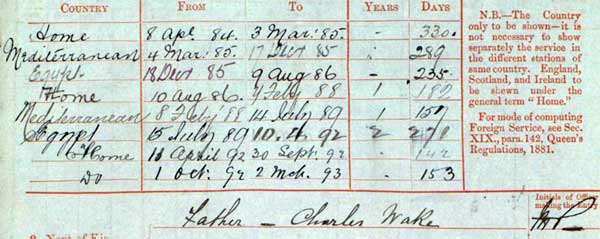 COUNTRY FROM TO YEARS DAYS
Home 8 Apl 84. 3 Mar: 85. - 330
Mediterranean 4 Mar: 85. 17 Decr 85 289
Egypt 18 Decr 85 9 Aug 86 - 235
Home 10 Aug 86. 7 Feby 88 1 182
Mediterranean 8 Feby 88 14 July 89 1 157
Egypt 15 July 89 10. 4. 92 2 270
Home 11 April 92 30 Sept. 92
Do 1 Oct. 92 2 Mch. 93 153
N.B.—The Country
only to be shown—it is
not necessary to show
separately the service in
the different stations of
same country. England,
Scotland, and Ireland to
be shewn under the
general term "Home."
For mode of computing
Foreign Service, see Sec.
XIX., para. 142, Queen's
Regulations, 1881.
Father — Charles Wake
Initials of Offi
making the Entry
8. Next of Kin